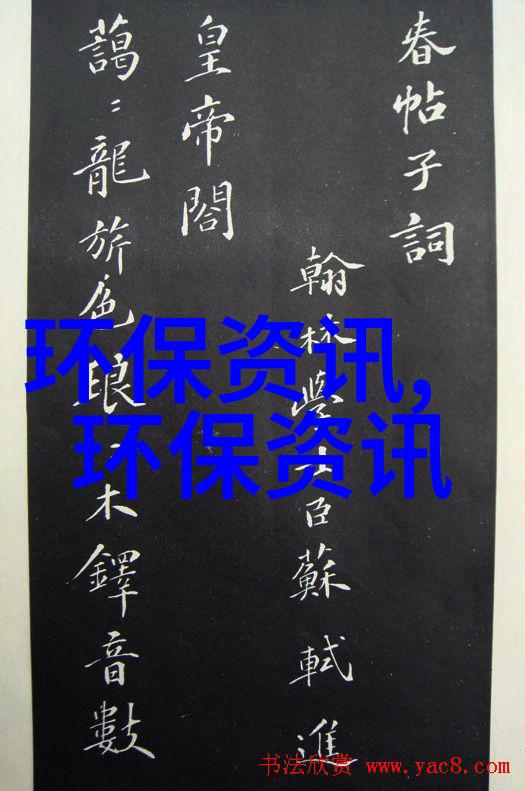 春帖子詞
翰林學士臣蘇軾進
皇帝閣
藹〻龍旂色琅〻木鐸音數
环保资讯,
环保资讯
书法欣赏 www.yac8.com